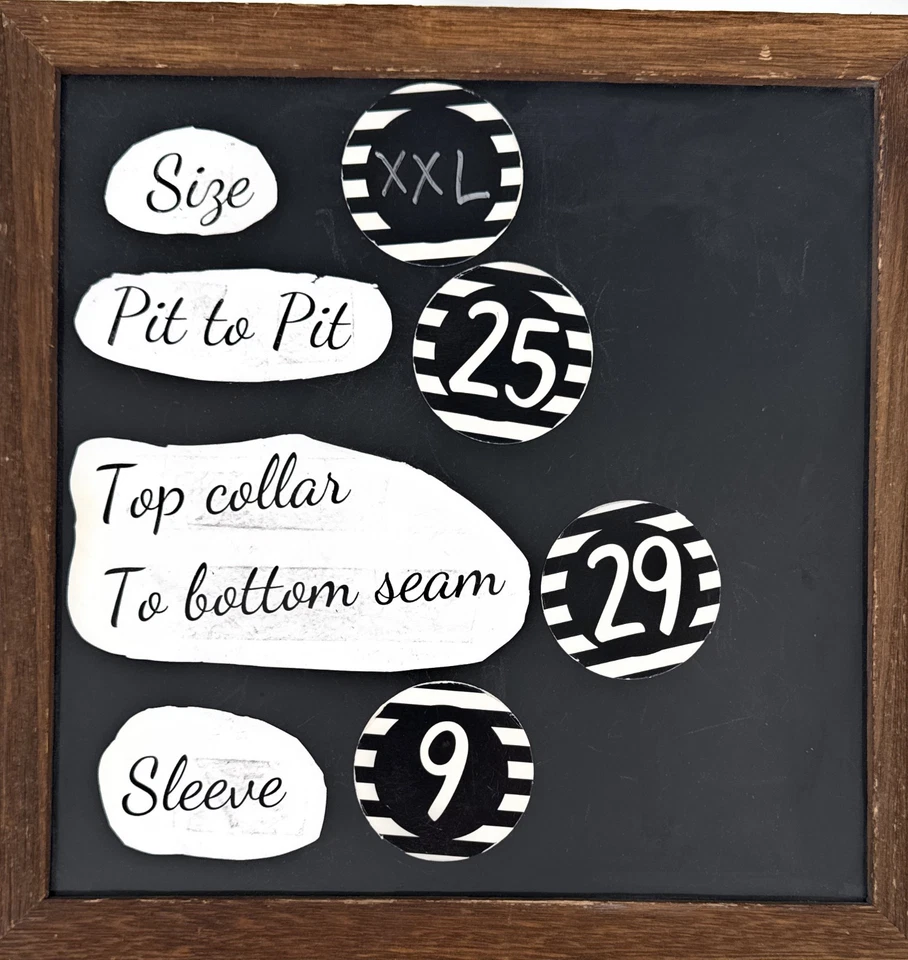 Size XXL
Pit to Pit 25
Top collar
To bottom seam 29
Sleeve 9